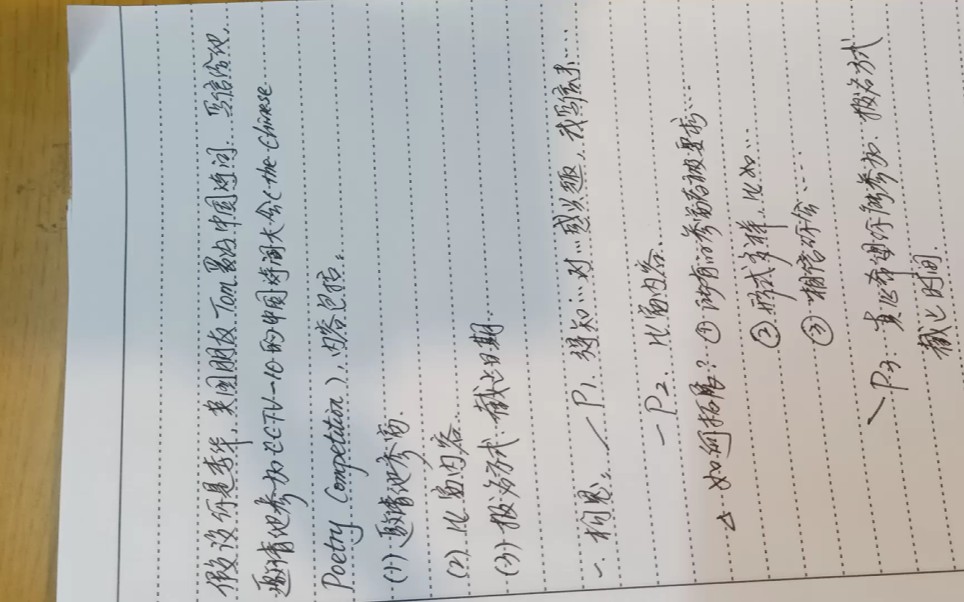 假设你是李华，英国朋友Tom喜欢中国诗词. 写信给他.
邀请他参加CCTV-10的中国诗词大会(the Chinese
Poetry Competition), 内容包括:
(1) 邀请他参赛
(2) 比赛内容.
(3) 报名方式. 截止日期.
一. 构思: P1. 得知... 对...感兴趣, 我写信来...
P2. 比赛内容.
△ 如何拓展? ① 所有的参赛者被要求...
② 形式多样. 比如...
③ 相信你会...
P3. 真心希望你能参加. 报名方式
截止时间.